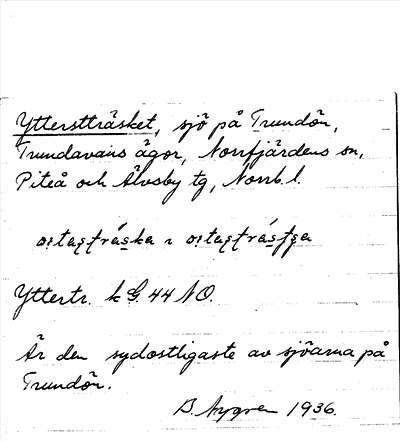 Ytterstträsket, sjö på Trundön,
Trundavans ägor, Norrfjärdens sn,
Piteå och Älvsby tg, Norrb. l.
Yttertr. k G. 44 NO.
Är den sydostligaste av sjöarna på
Trundön.
B. Nygren 1936.